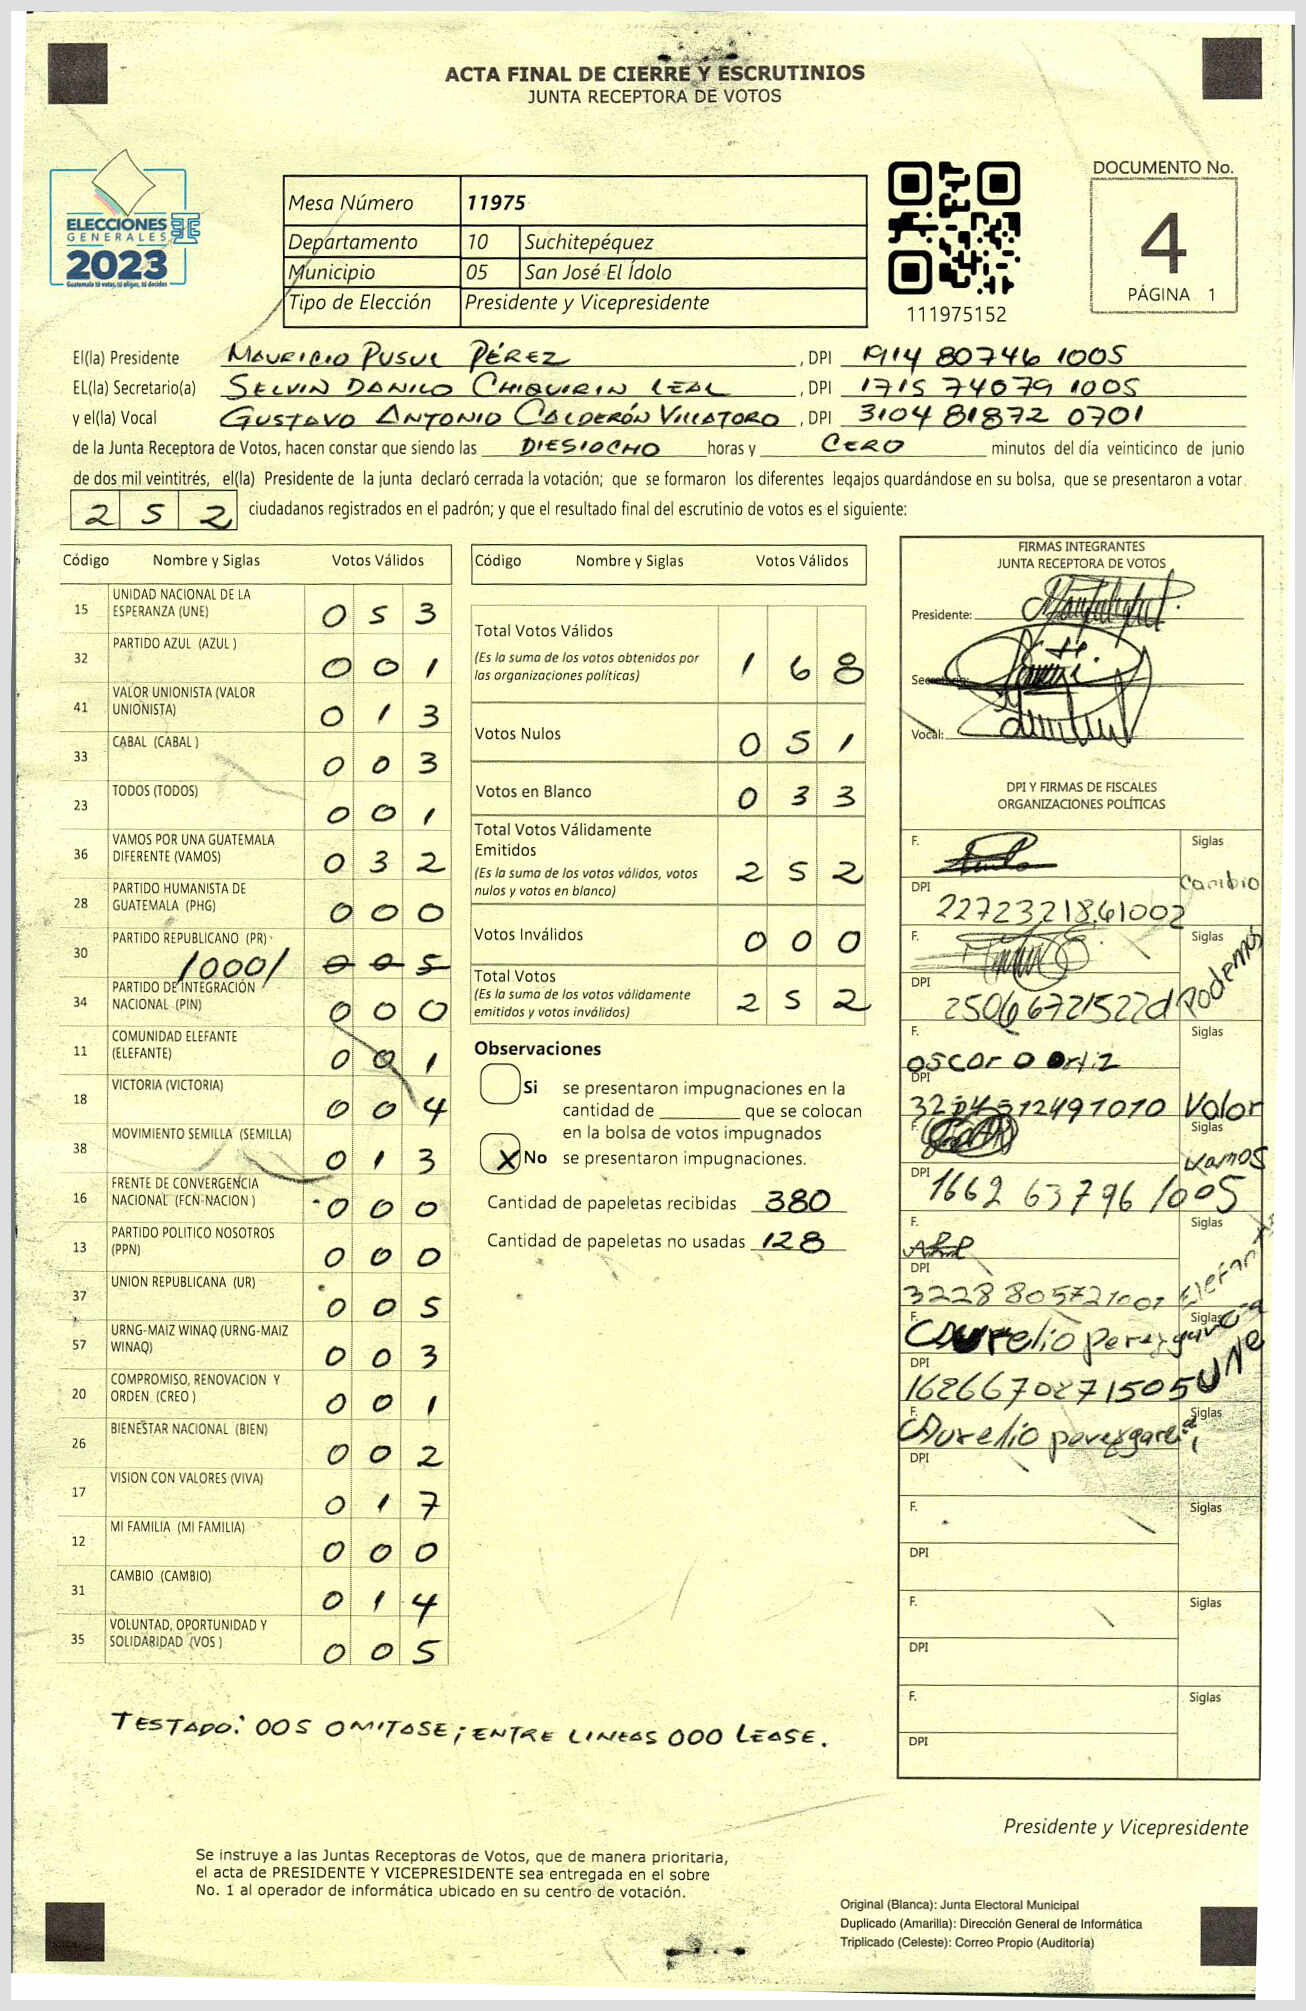 ACTA FINAL DE CIERRE Y ESCRUTINIOS
JUNTA RECEPTORA DE VOTOS
ELECCIONES
GENERALES
2023
Guatemala tú votas, tú eliges, tú decides
TSE
Mesa Número 11975
Departamento 10 Suchitepéquez
Municipio 05 San José El Ídolo
Tipo de Elección Presidente y Vicepresidente
111975152
DOCUMENTO No.
4
PÁGINA 1
El(la) Presidente MAURICIO PUSUL PÉREZ, DPI 1914 80746 1005
EL(la) Secretario(a) SELVIN DANILO CHIQUIRIN LEAL, DPI 1715 74079 1005
y el(la) Vocal GUSTAVO ANTONIO CALDERÓN VILLATORO, DPI 3104 81872 0701
de la Junta Receptora de Votos, hacen constar que siendo las DIESIOCHO horas y CERO minutos del día veinticinco de junio
de dos mil veintitrés, el(la) Presidente de la junta declaró cerrada la votación; que se formaron los diferentes legajos guardándose en su bolsa, que se presentaron a votar
2 5 2 ciudadanos registrados en el padrón; y que el resultado final del escrutinio de votos es el siguiente:
Código Nombre y Siglas Votos Válidos
15 UNIDAD NACIONAL DE LA ESPERANZA (UNE) 0 5 3
32 PARTIDO AZUL (AZUL ) 0 0 1
41 VALOR UNIONISTA (VALOR UNIONISTA) 0 1 3
33 CABAL (CABAL ) 0 0 3
23 TODOS (TODOS) 0 0 1
36 VAMOS POR UNA GUATEMALA DIFERENTE (VAMOS) 0 3 2
28 PARTIDO HUMANISTA DE GUATEMALA (PHG) 0 0 0
30 PARTIDO REPUBLICANO (PR) /000/ 0 0 5
34 PARTIDO DE INTEGRACIÓN NACIONAL (PIN) 0 0 0
11 COMUNIDAD ELEFANTE (ELEFANTE) 0 0 1
18 VICTORIA (VICTORIA) 0 0 4
38 MOVIMIENTO SEMILLA (SEMILLA) 0 1 3
16 FRENTE DE CONVERGENCIA NACIONAL (FCN-NACION ) 0 0 0
13 PARTIDO POLITICO NOSOTROS (PPN) 0 0 0
37 UNION REPUBLICANA (UR) 0 0 5
57 URNG-MAIZ WINAQ (URNG-MAIZ WINAQ) 0 0 3
20 COMPROMISO, RENOVACION Y ORDEN (CREO ) 0 0 1
26 BIENESTAR NACIONAL (BIEN) 0 0 2
17 VISION CON VALORES (VIVA) 0 1 7
12 MI FAMILIA (MI FAMILIA) 0 0 0
31 CAMBIO (CAMBIO) 0 1 4
35 VOLUNTAD, OPORTUNIDAD Y SOLIDARIDAD (VOS ) 0 0 5
Código Nombre y Siglas Votos Válidos
Total Votos Válidos 1 6 8
(Es la suma de los votos obtenidos por
las organizaciones políticas)
Votos Nulos 0 5 1
Votos en Blanco 0 3 3
Total Votos Válidamente
Emitidos 2 5 2
(Es la suma de los votos válidos, votos
nulos y votos en blanco)
Votos Inválidos 0 0 0
Total Votos 2 5 2
(Es la suma de los votos válidamente
emitidos y votos inválidos)
Observaciones
Si se presentaron impugnaciones en la
cantidad de ________ que se colocan
en la bolsa de votos impugnados
X No se presentaron impugnaciones.
Cantidad de papeletas recibidas 380
Cantidad de papeletas no usadas 128
FIRMAS INTEGRANTES
JUNTA RECEPTORA DE VOTOS
Presidente:
Secretario:
Vocal:
DPI Y FIRMAS DE FISCALES
ORGANIZACIONES POLÍTICAS
F. Siglas
Cambio
DPI 2272321861002
F. Siglas
Podemos
DPI
F. Siglas
oscar O Ortiz
DPI
Valor
F. Siglas
Vamos
DPI 1662 63796 1005
F. Siglas
DPI 3228 80572 1001
Elefante
F. Siglas
Aurelio perez garcia
DPI 1626670271505 UNE
F. Siglas
Aurelio perez garcia
DPI
F. Siglas
DPI
F. Siglas
DPI
F. Siglas
DPI
TESTADO: 005 OMITASE; ENTRE LINEAS 000 LEASE.
Presidente y Vicepresidente
Se instruye a las Juntas Receptoras de Votos, que de manera prioritaria,
el acta de PRESIDENTE Y VICEPRESIDENTE sea entregada en el sobre
No. 1 al operador de informática ubicado en su centro de votación.
Original (Blanca): Junta Electoral Municipal
Duplicado (Amarilla): Dirección General de Informática
Triplicado (Celeste): Correo Propio (Auditoría)